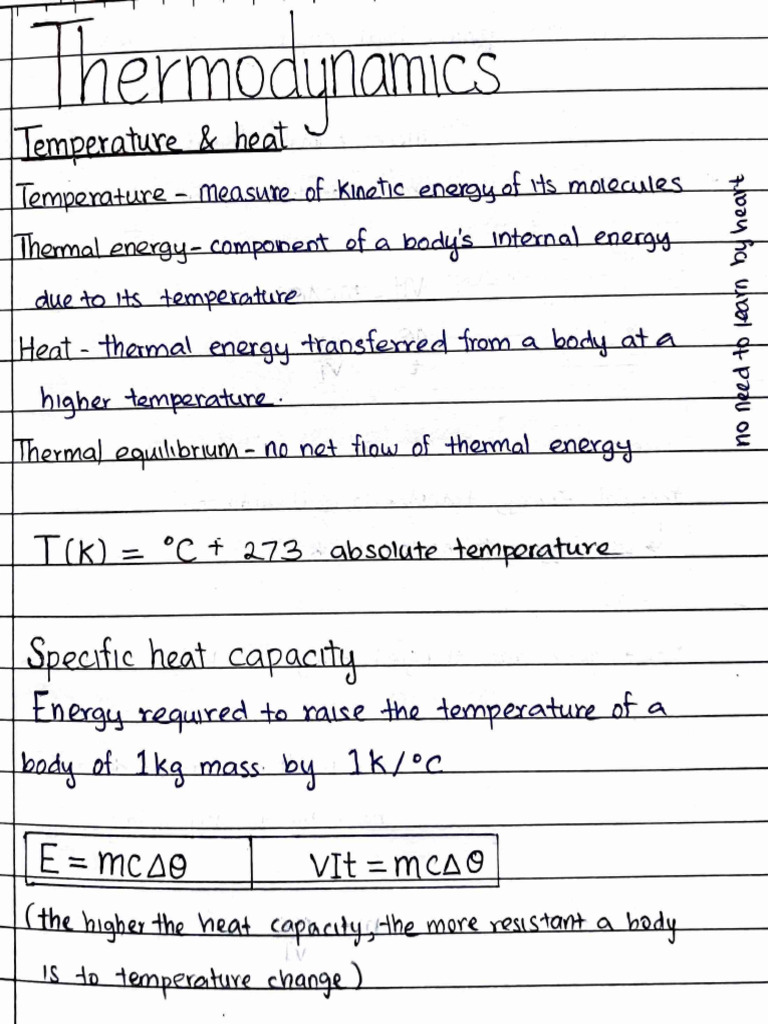 Thermodynamics
Temperature & heat
Temperature - measure of kinetic energy of its molecules
Thermal energy - component of a body's internal energy
due to its temperature
Heat - thermal energy transferred from a body at a
higher temperature.
Thermal equilibrium - no net flow of thermal energy
no need to learn by heart
T(K) = °C + 273 absolute temperature
Specific heat capacity
Energy required to raise the temperature of a
body of 1kg mass by 1K/°C
E = mcΔθ VIt = mcΔθ
(the higher the heat capacity, the more resistant a body
is to temperature change)